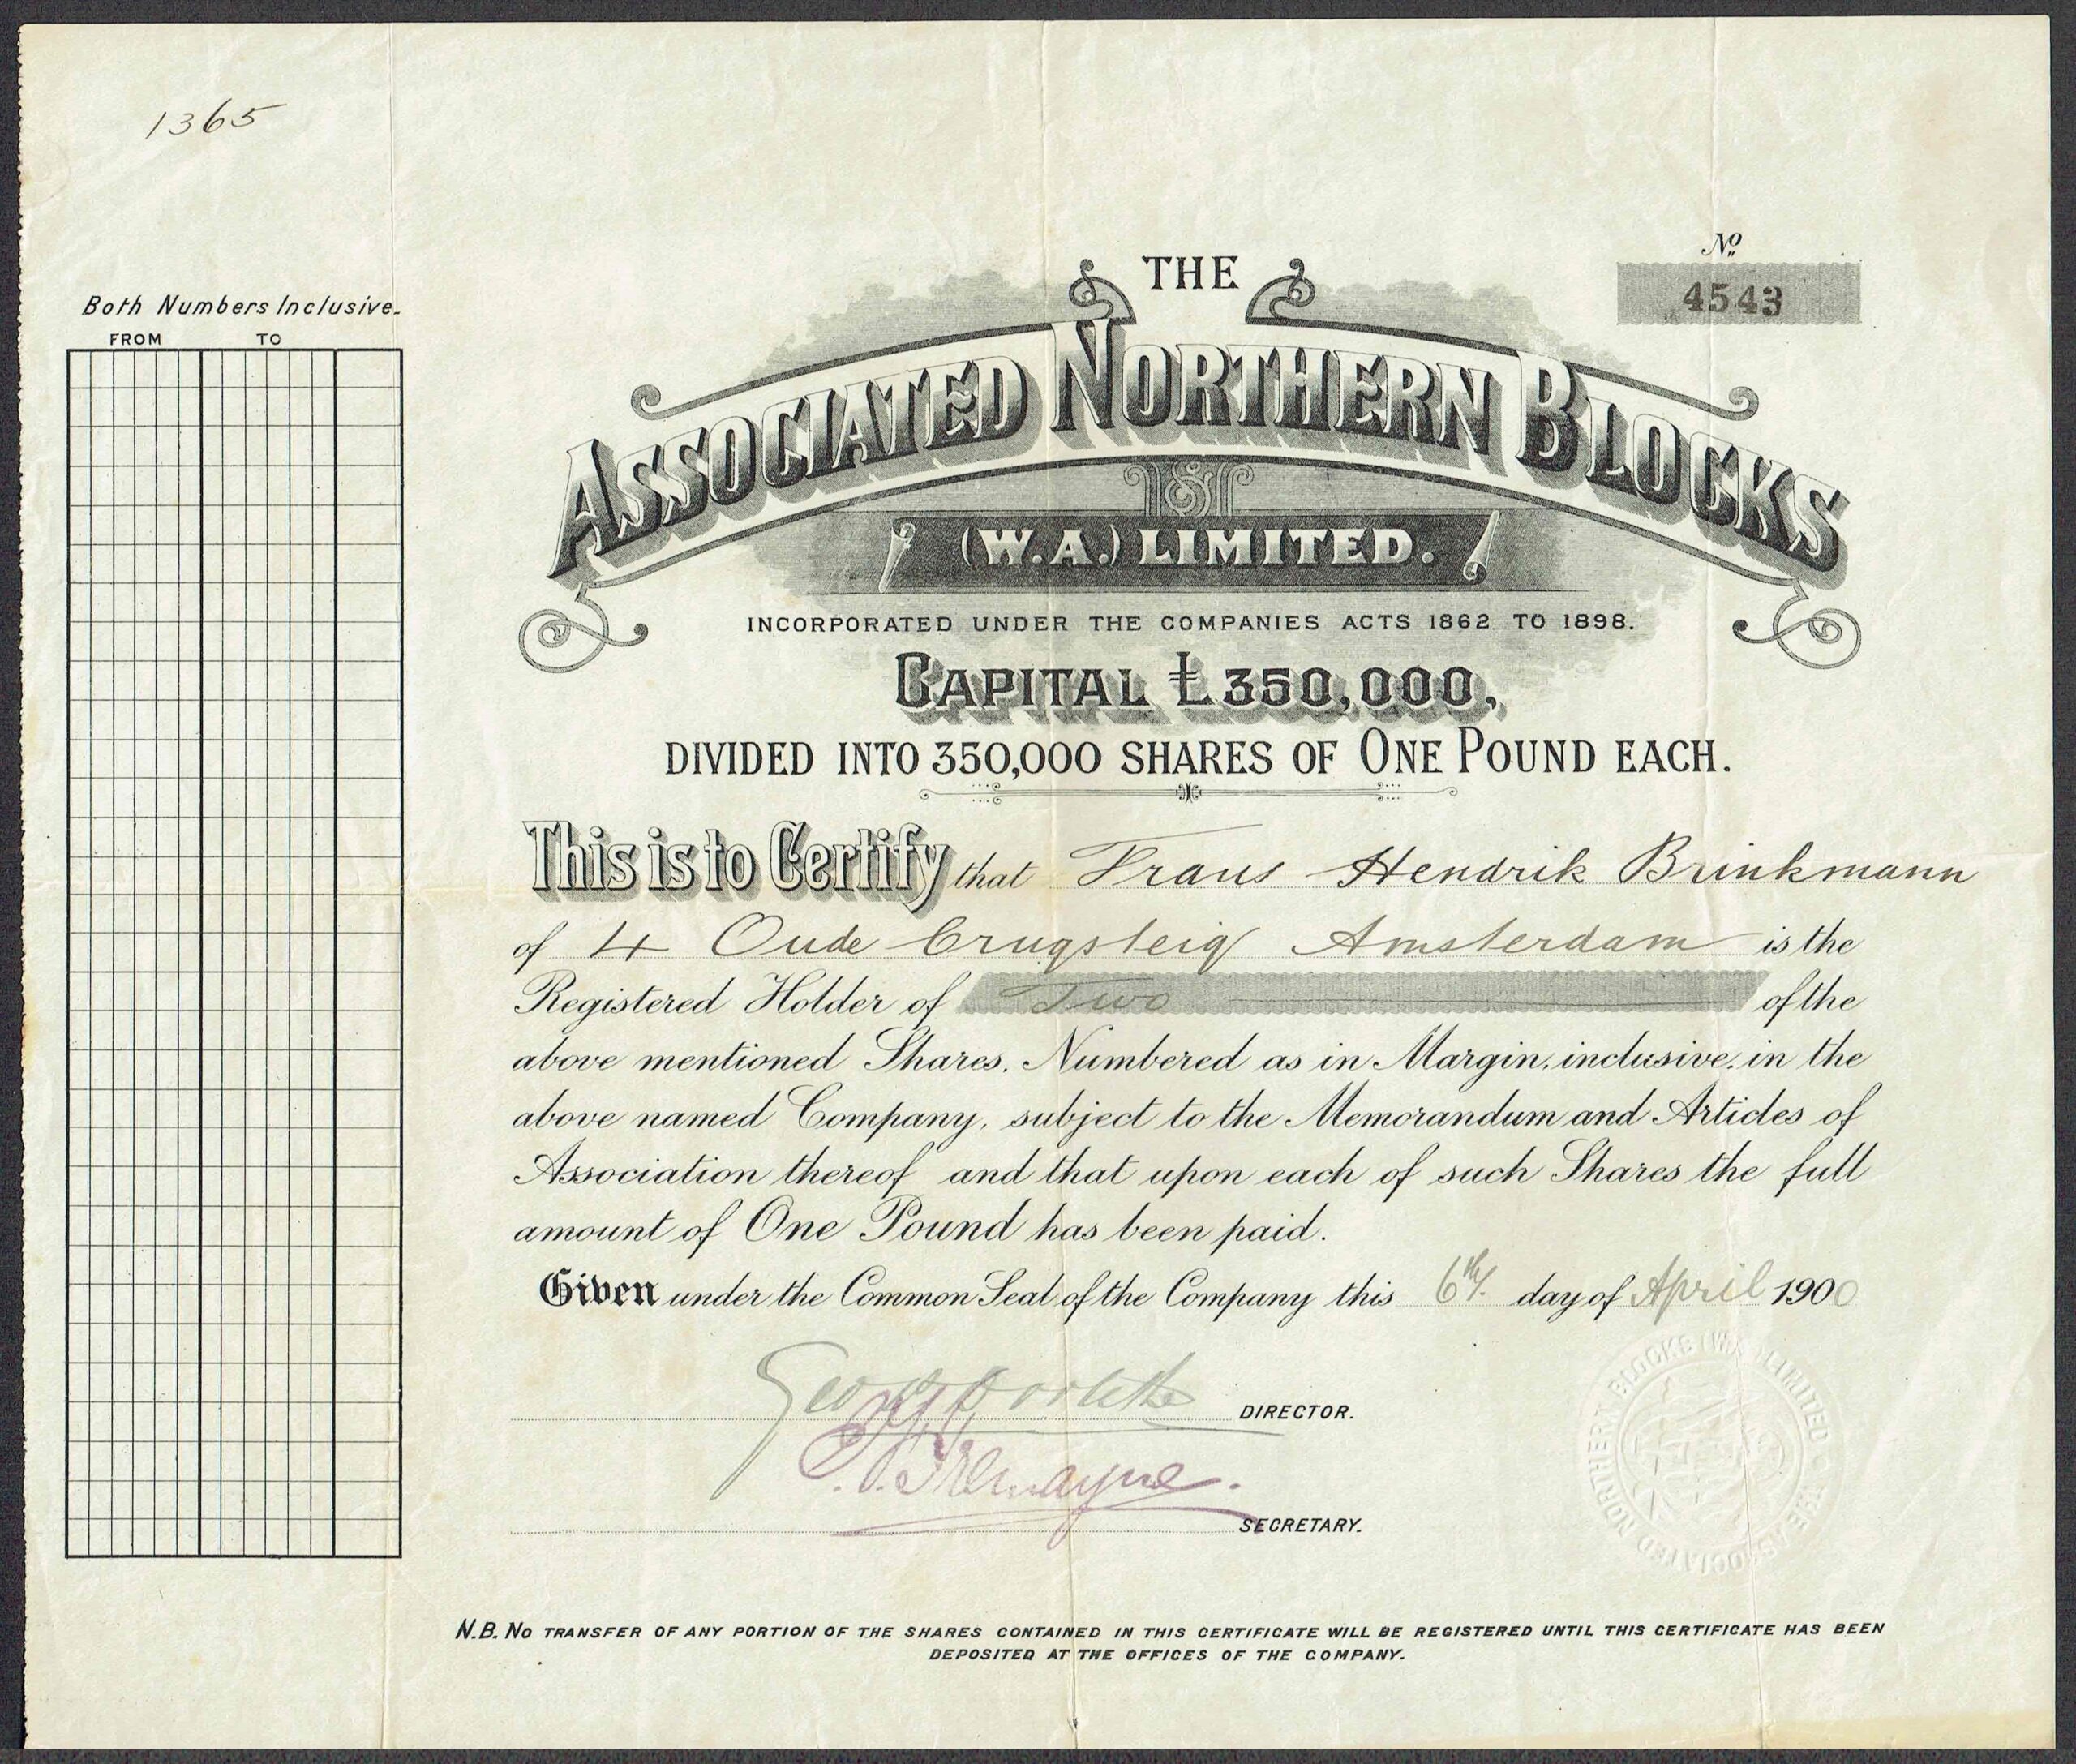 1365
Both Numbers Inclusive.
FROM TO
No
4543
THE
ASSOCIATED NORTHERN BLOCKS
(W.A.) LIMITED.
INCORPORATED UNDER THE COMPANIES ACTS 1862 TO 1898.
CAPITAL £350,000,
DIVIDED INTO 350,000 SHARES OF ONE POUND EACH.
This is to Certify that Frans Hendrik Brinkmann
of 4 Oude Amsterdam is the
Registered Holder of Two of the
above mentioned Shares. Numbered as in Margin, inclusive, in the
above named Company, subject to the Memorandum and Articles of
Association thereof and that upon each of such Shares the full
amount of One Pound has been paid.
Given under the Common Seal of the Company this 6th day of April 1900
DIRECTOR.
Tremayne.
SECRETARY.
THE ASSOCIATED NORTHERN BLOCKS (W.A.) LIMITED
N.B. NO TRANSFER OF ANY PORTION OF THE SHARES CONTAINED IN THIS CERTIFICATE WILL BE REGISTERED UNTIL THIS CERTIFICATE HAS BEEN
DEPOSITED AT THE OFFICES OF THE COMPANY.